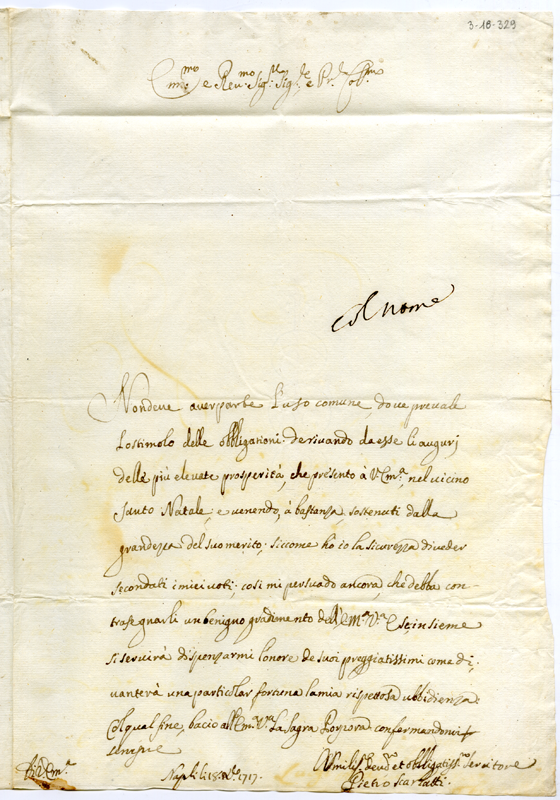 3-18-329
Em.mo e Rev.mo Sig.re Sig.re e Pr.ne Col.mo
Col nome
Non deve aver parte l'uso comune, dove prevale
lo stimolo delle obbligationi: derivando da esse li augurj
delle più elevate prosperità, che presento à V. Em.a, nel vicino
Santo Natale; e venendo, à bastanza, sostenuti dalla
grandezza del suo merito; siccome ho io la sicurezza di veder
secondati i miei voti; così mi persuado ancora, che debba con-
trasegnarli un benigno gradimento dell'Em.a V.ra E se insieme
si servirà dispensarmi l'onore de suoi preggiatissimi comandi,
vanterà una particolar fortuna la mia rispettosa ubbidienza.
Col qual fine, bacio all'Em.a V.ra la Sagra Porpora confermandomi
sempre
Di V. Em.a
Napoli li 1717.
Umiliss.o dev.o et obligatiss.mo Servitore
Pietro Scarlatti.